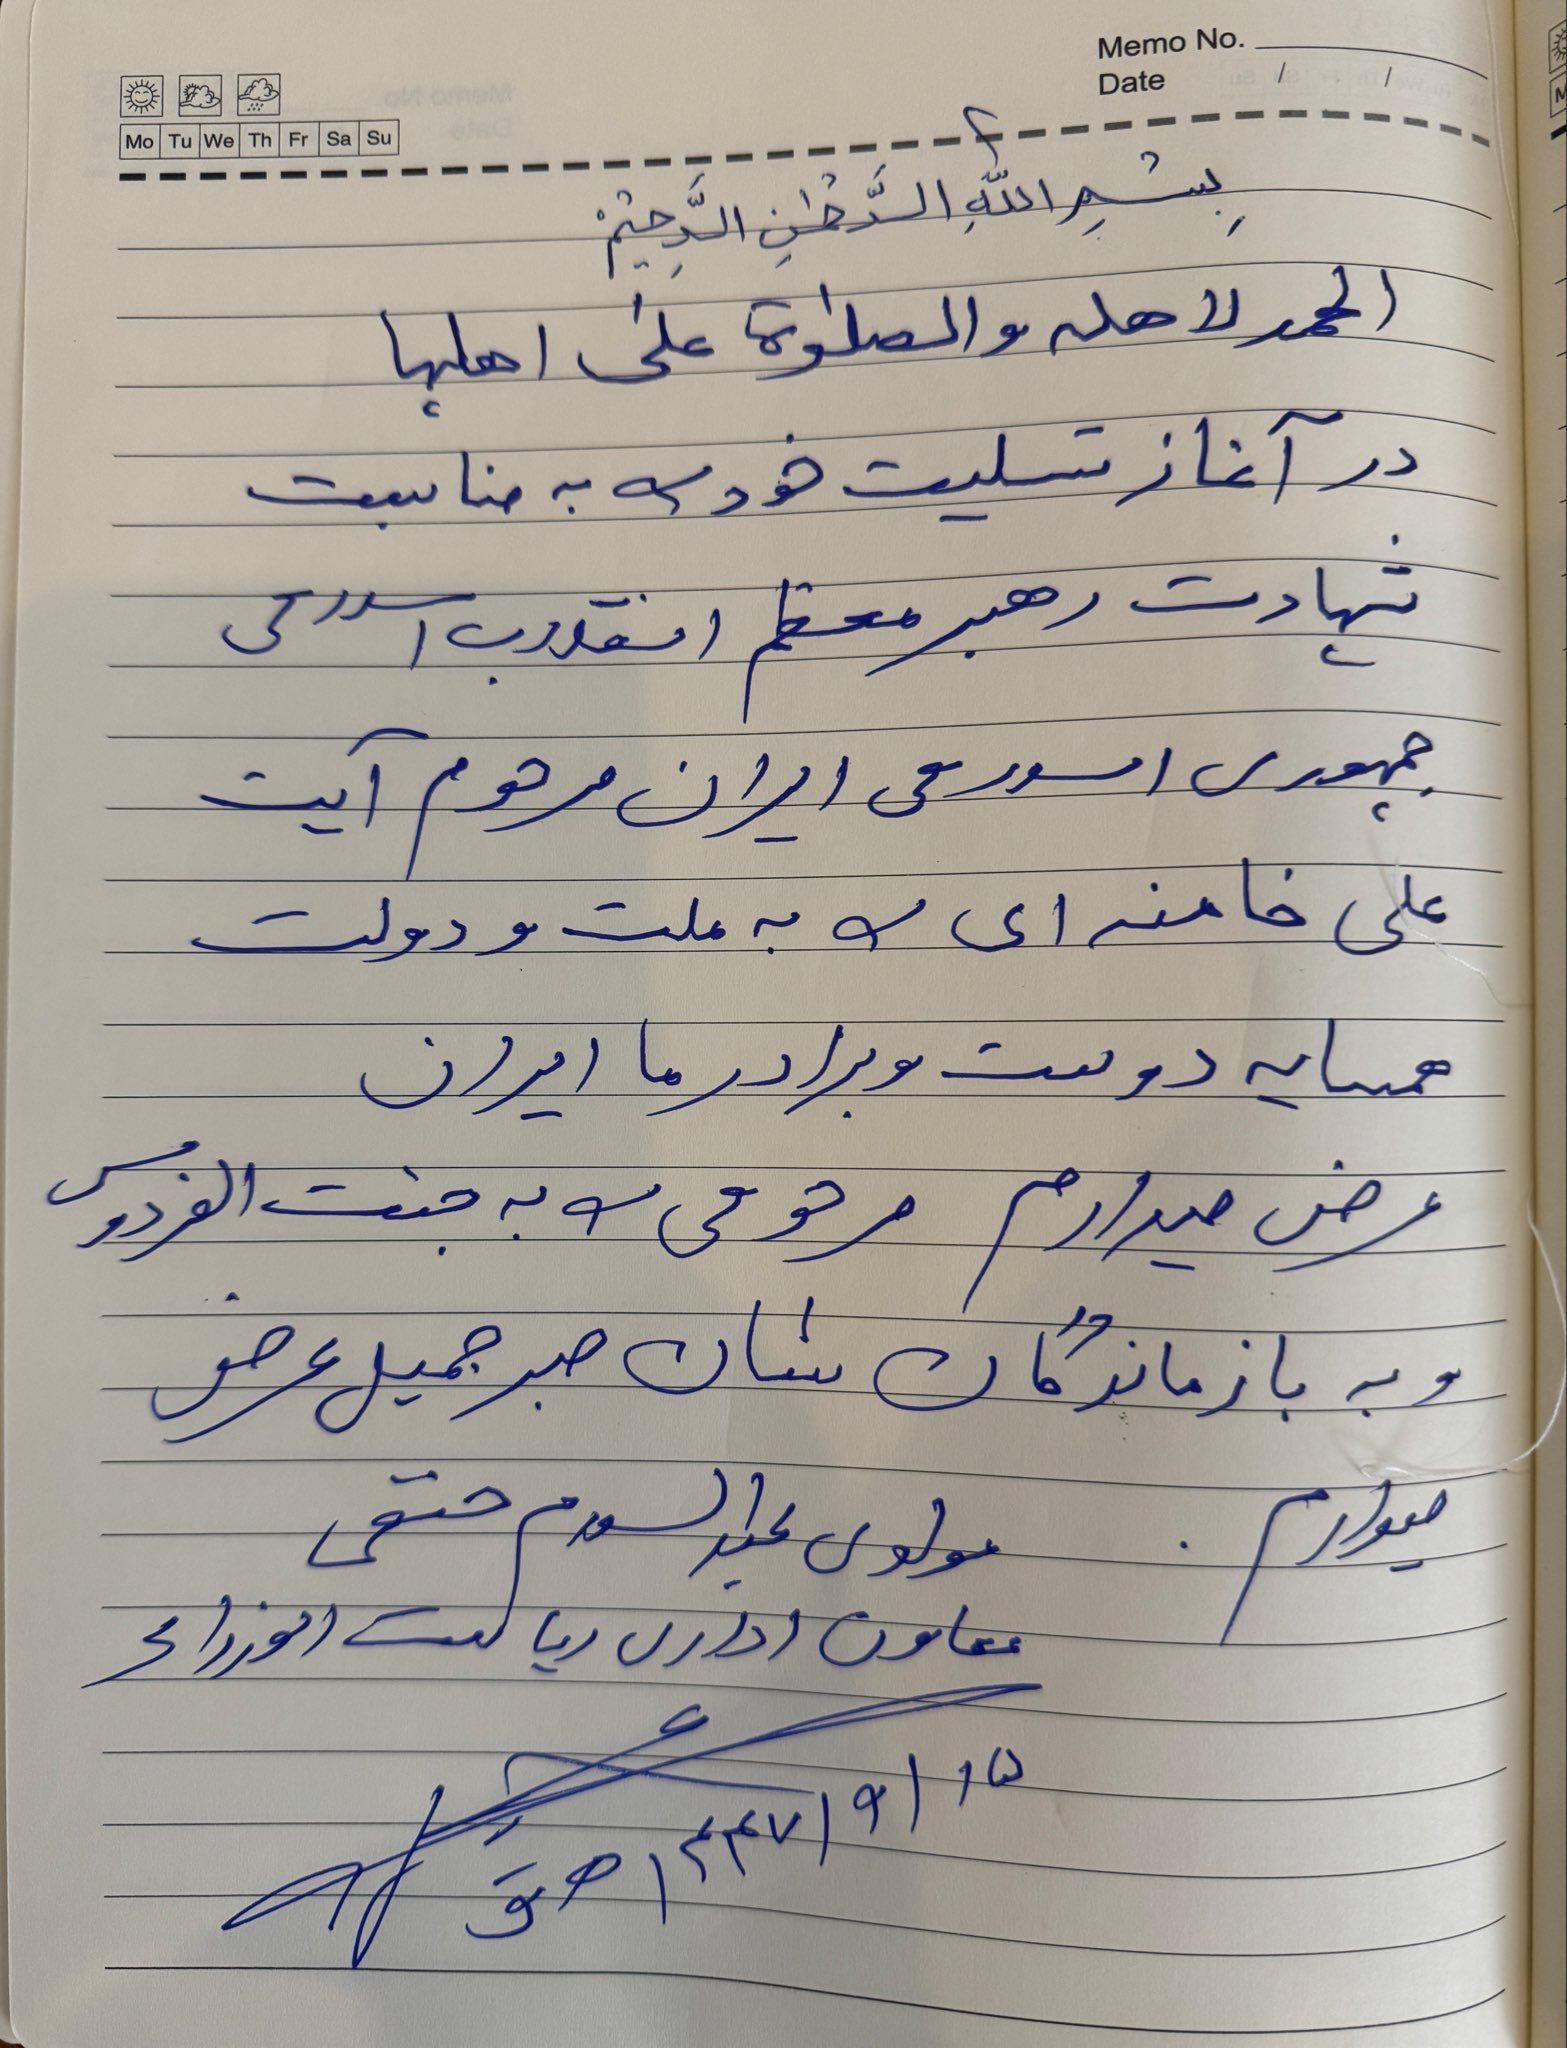 Memo No.
Date / /
Mo Tu We Th Fr Sa Su
بِسْمِ اللهِ الرَّحْمٰنِ الرَّحِيْمْ
الحمد لاهله والصلوٰة علىٰ اهلها
در آغاز تسلیت خود را به مناسبت
شهادت رهبر معظم انقلاب اسلامی
جمهوری اسلامی ایران مرحوم آیت
علی خامنه ای را به ملت و دولت
همسایه دوست و برادر ما ایران
عرض میدارم مرحومی را به جنت الفردوس
و به بازماندگان شان صبر جمیل عرض
میدارم .
مولوی عبدالسلام حنفی
معاون اداری ریاست الوزراء
۱۴۴۷/۹/۱۵ هـ ق